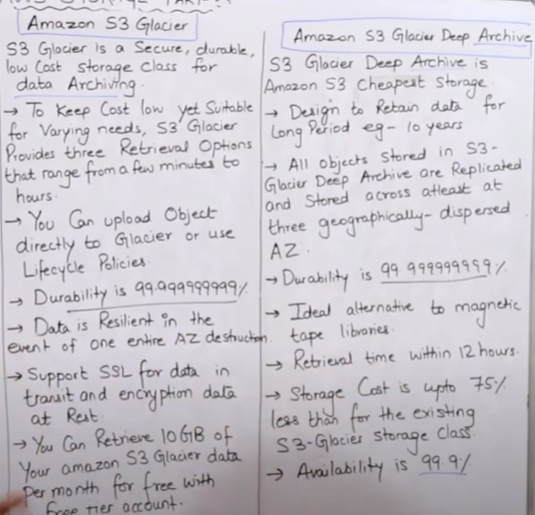 Amazon S3 Glacier
S3 Glacier is a Secure, durable,
low Cost storage class for
data Archiving.
→ To Keep Cost low yet Suitable
for Varying needs, S3 Glacier
Provides three Retrieval Options
that range from a few minutes to
hours.
→ You Can upload Object
directly to Glacier or use
Lifecycle Policies.
→ Durability is 99.999999999%
→ Data is Resilient in the
event of one entire AZ destruction.
→ Support SSL for data in
transit and encryption data
at Rest.
→ You Can Retrieve 10GB of
Your amazon S3 Glacier data
Per month for free with
free tier account.
Amazon S3 Glacier Deep Archive
S3 Glacier Deep Archive is
Amazon S3 Cheapest Storage.
→ Design to Retain data for
Long Period eg- 10 years
→ All objects Stored in S3-
Glacier Deep Archive are Replicated
and Stored across atleast at
three geographically-dispersed
AZ.
→ Durability is 99.999999999%
→ Ideal alternative to magnetic
tape libraries.
→ Retrieval time within 12 hours.
→ Storage Cost is upto 75%
less than for the existing
S3-Glacier Storage Class
→ Availability is 99.9%